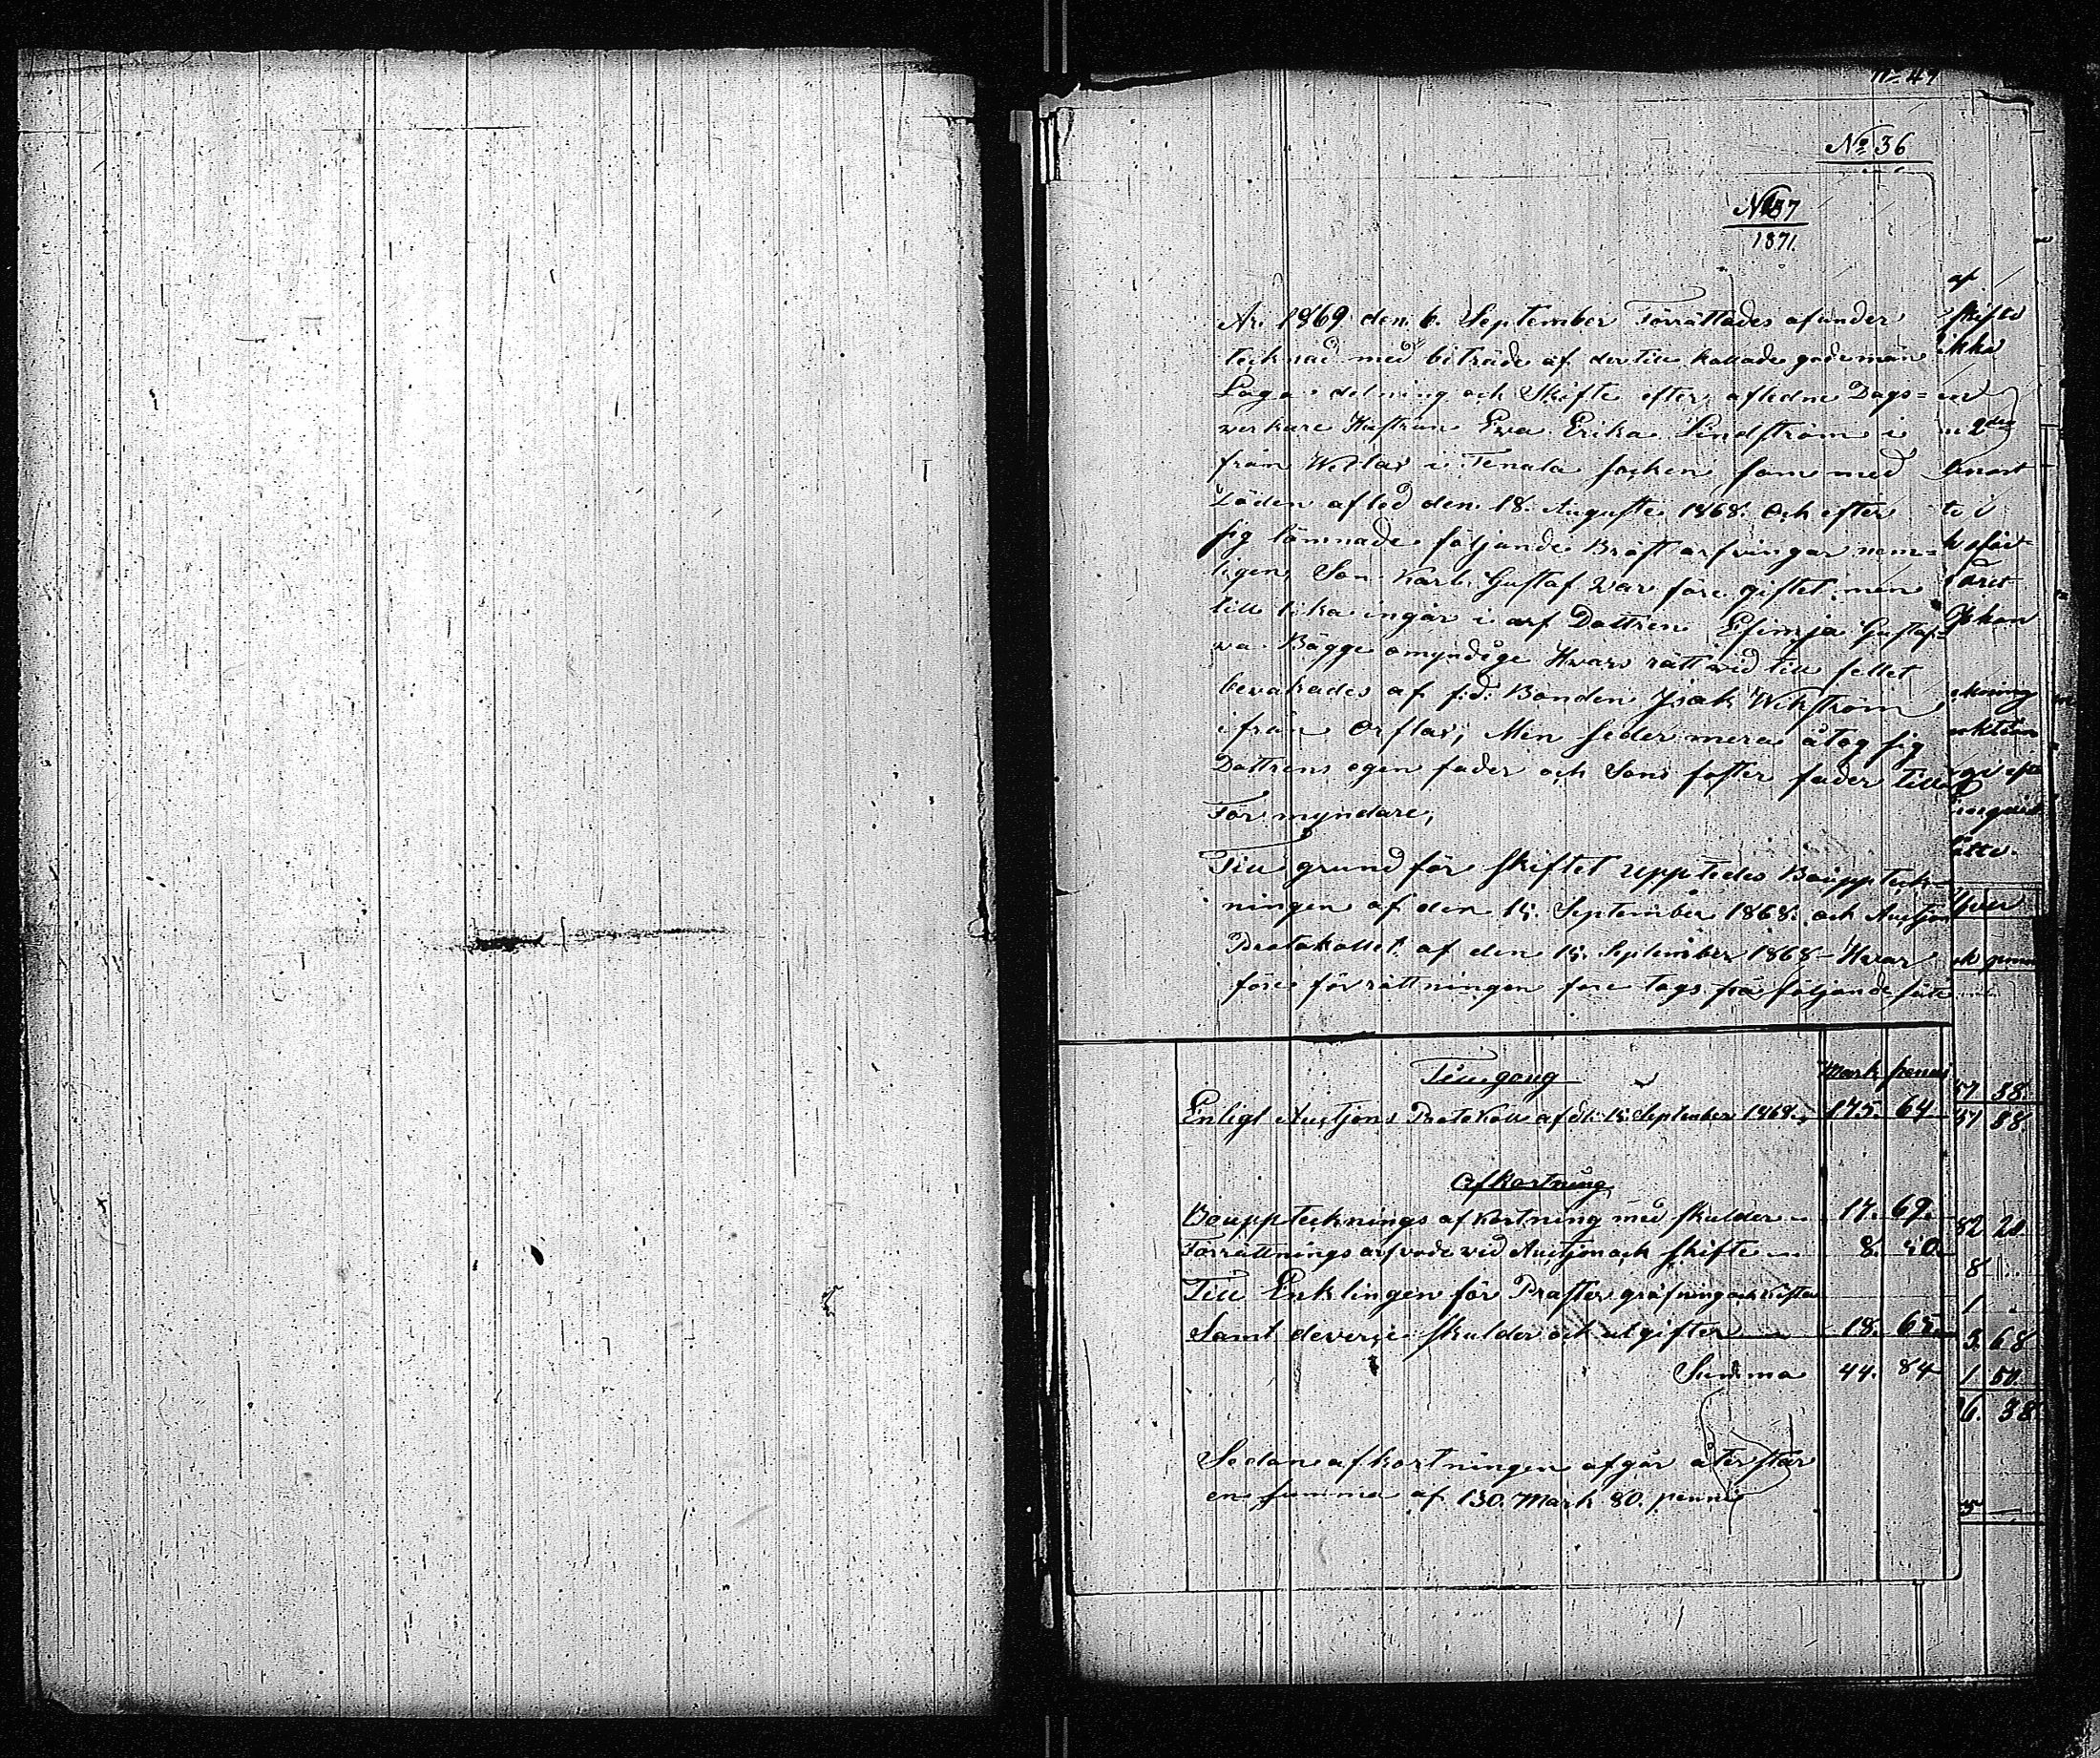 No 36
No 37
1871.
År 1869 den 6. September Förrättades af under
tecknad med biträde af der till kallade gode män
Laga delning och Skifte efter aflidne Dags=
verkare Hustrun Eva Erika Lindström i
från Westar i Tenala socken som med
Döden afled den 18. Augusti 1868. Och efter
sig lämnade följande Bröst arfvingar nem=
ligen Son Karl Gustaf var före giftet men
till lika ingår i arf Dottren Efimja Gustaf=
va Bägge omyndige Hvars rätt vid till fellet
bevakades af f.d. Bonden Isak Wikström
ifrån Orslax, Men sedermera åtog sig
Dottrens egen fader och Sons foster fader till
För myndare,
Till grund för skiftet uppteddes Bouppteck=
ningen af den 15. September 1868. och Auctjon
Protokollet af den 15. September 1868 - Hvar
före för rättningen före togs på följande sätt
Till gong
Mark penni
Enligt Auctjons Protokoll af d: 15 September 1868. 175. 64
Afkortning
Bouppteknings afkortning med skulder 17. 69.
Förrättnings arfvode vid Auctjon och skifte 8. 50.
Till Enklingen för Praster gräfning och kista
Samt deverse skulder och utgifter 18. 65.
Summa 44. 84
Sedan afkortningen afgår återstår
en summa af 130. Mark 80. penni
af
skifte
2den
te i
Johan
57 88
57 88
82 20
8
1
3 68
1 50
6. 38